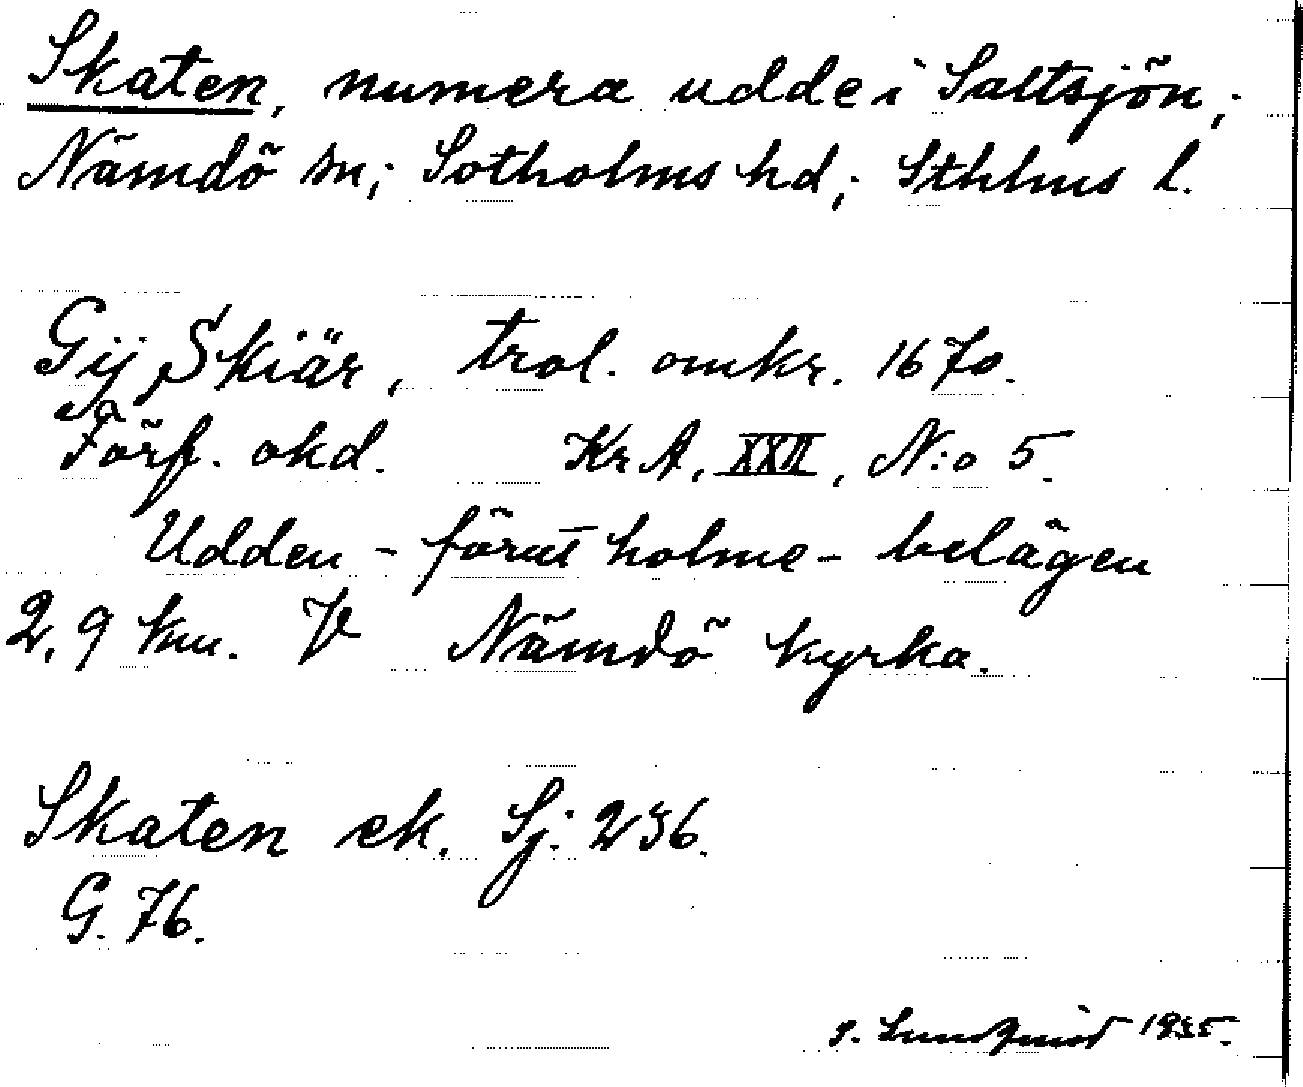 Skaten, numera udde i Saltsjön,;
Nämdö sn; Sotholms hd,; Sthlms l.
Gij Skiär, trol. omkr. 1670.
Förf. okd. Kr A, XXII, N:o 5.
Udden - förut holme - belägen
2,9 km. V Nämdö kyrka.
Skaten ek. Sj: 236.
G. 76.
S. Lundqvist 1935.